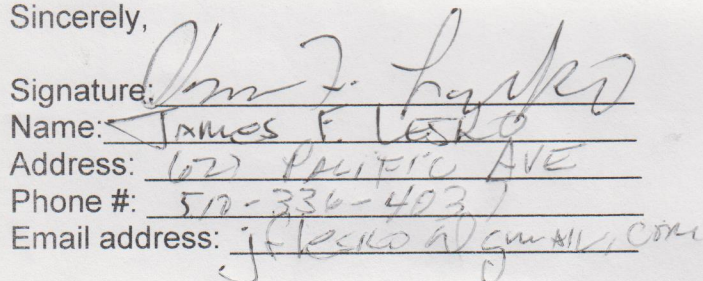 Sincerely,
Signature: James F. Lesko
Name: JAMES F. LESKO
Address: 627 PACIFIC AVE
Phone #: 510-336-4037
Email address: jflesko@gmail.com